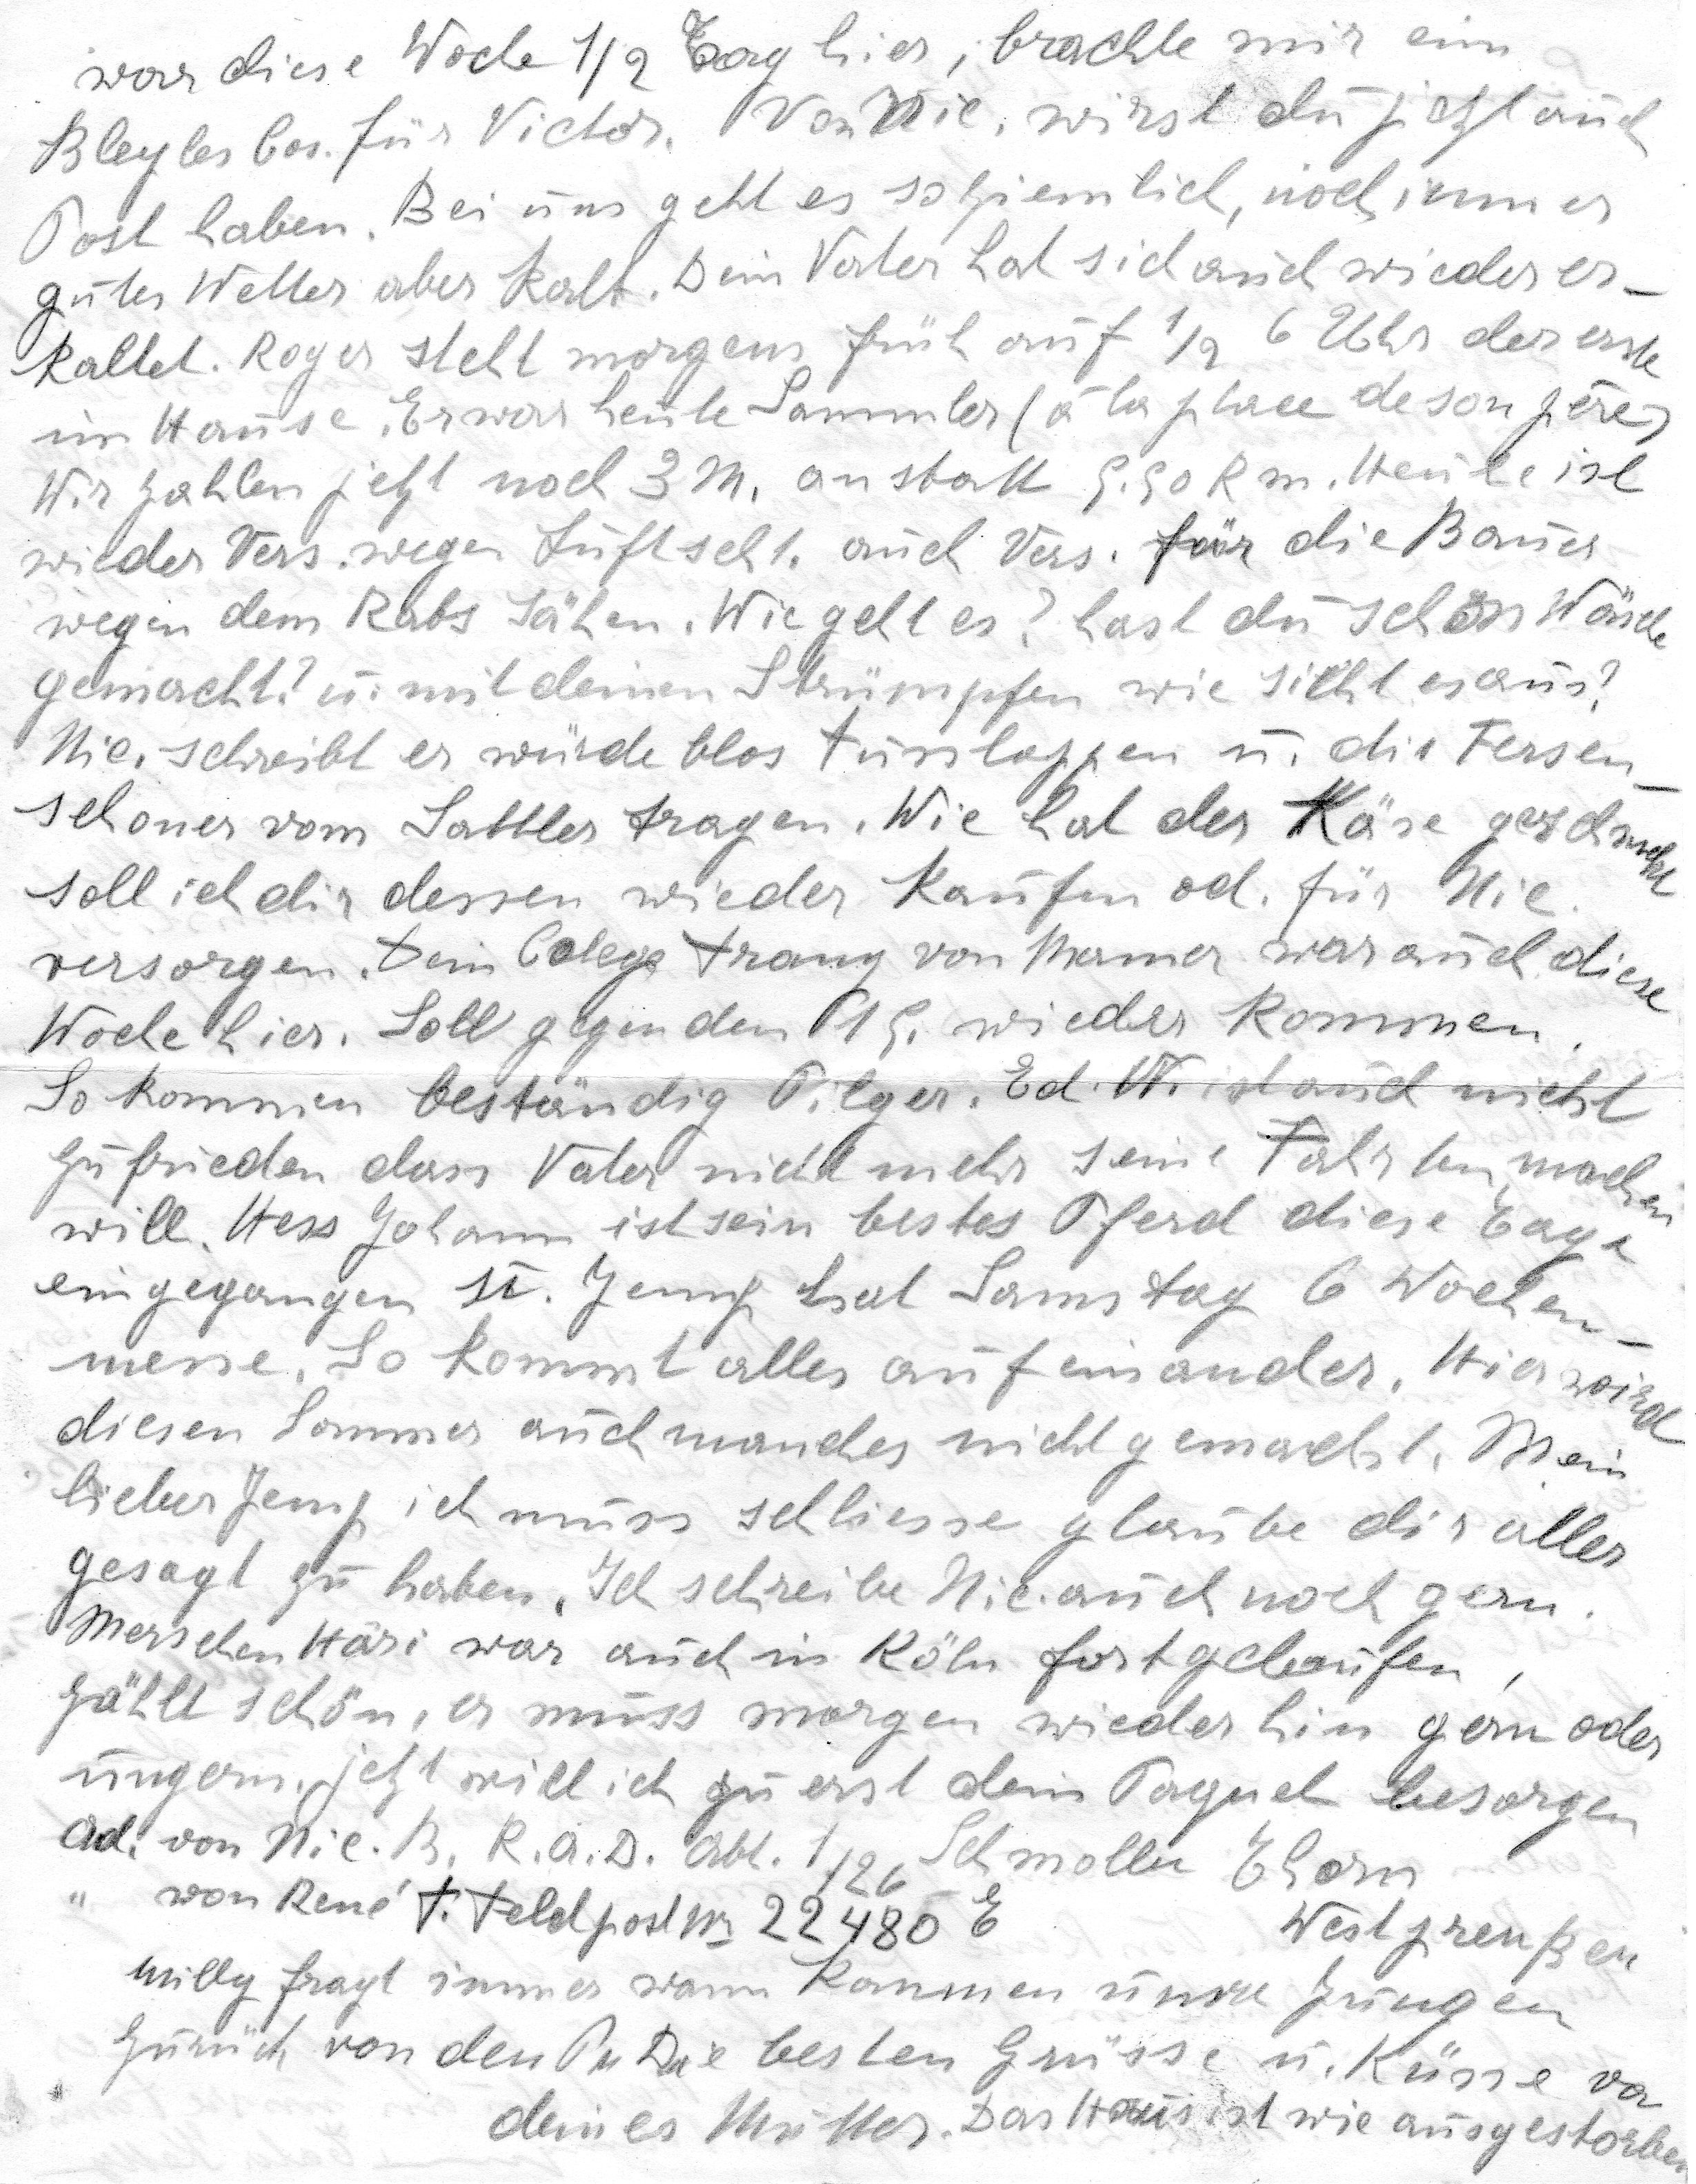 war diese Woche 1/2 Tag hier, brachte mir ein
Bleyles Cos. für Victor. Von Nic. wirst du jetzt auch
Post haben. Bei uns geht es so ziemlich, noch immer
gutes Wetter aber kalt. Dein Vater hat sich auch wieder er-
kaltet. Roger steht morgens früh auf 1/2 6 Uhr der erste
im Hause. Er war heute Sammler (á la place de son père)
Wir zahlen jetzt noch 3 M. anstatt 5.50 Rm. Heute ist
wieder Vers. wegen Luftsch. auch Vers. für die Bauer
wegen dem Rabs sähen. Wie geht es? hast du schon Wäsche
gemacht? u. mit deinen Strümpfen wie sieht es aus?
Nic. schreibt er würde blos Fusslappen u. die Fersen-
schoner vom Sattler tragen. Wie hat der Käse geschmeckt
soll ich dir dessen wieder kaufen od. für Nic.
versorgen. Dein Colege Franz von Mamer war auch diese
Woche hier. Soll gegen den 15. wieder kommen.
So kommen beständig Pilger. Ed. W. ist auch nicht
zufrieden dass Vater nicht mehr seine Fahrten machen
will. Hess Johann ist sein bestes Pferd diese Tage
eingegangen u. Jemp hat Samstag 6 Wochen-
messe. So kommt alles aufeinander. Hier wird
diesen Sommer auch manches nicht gemacht. Mein
lieber Jemp ich muss schliesse glaube dir alles
gesagt zu haben. Ich schreibe Nic. auch noch gern.
Merschen Häri war auch in Köln fortgelaufen,
zählt schön, er muss morgen wieder hin gern oder
ungern. jetzt will ich zuerst dein Paquet besorgen
Ad. von Nic. B. R.A.D. Abt. 1/126 Schmolln Thorn
" von René F. Feldpost Nr 22480 E Westpreußen
Milly fragt immer wann kommen unsre Jungen
zurück von den Pr Die besten Grüsse u. Küsse von
deines Mutter. Das Haus ist wie ausgestorben